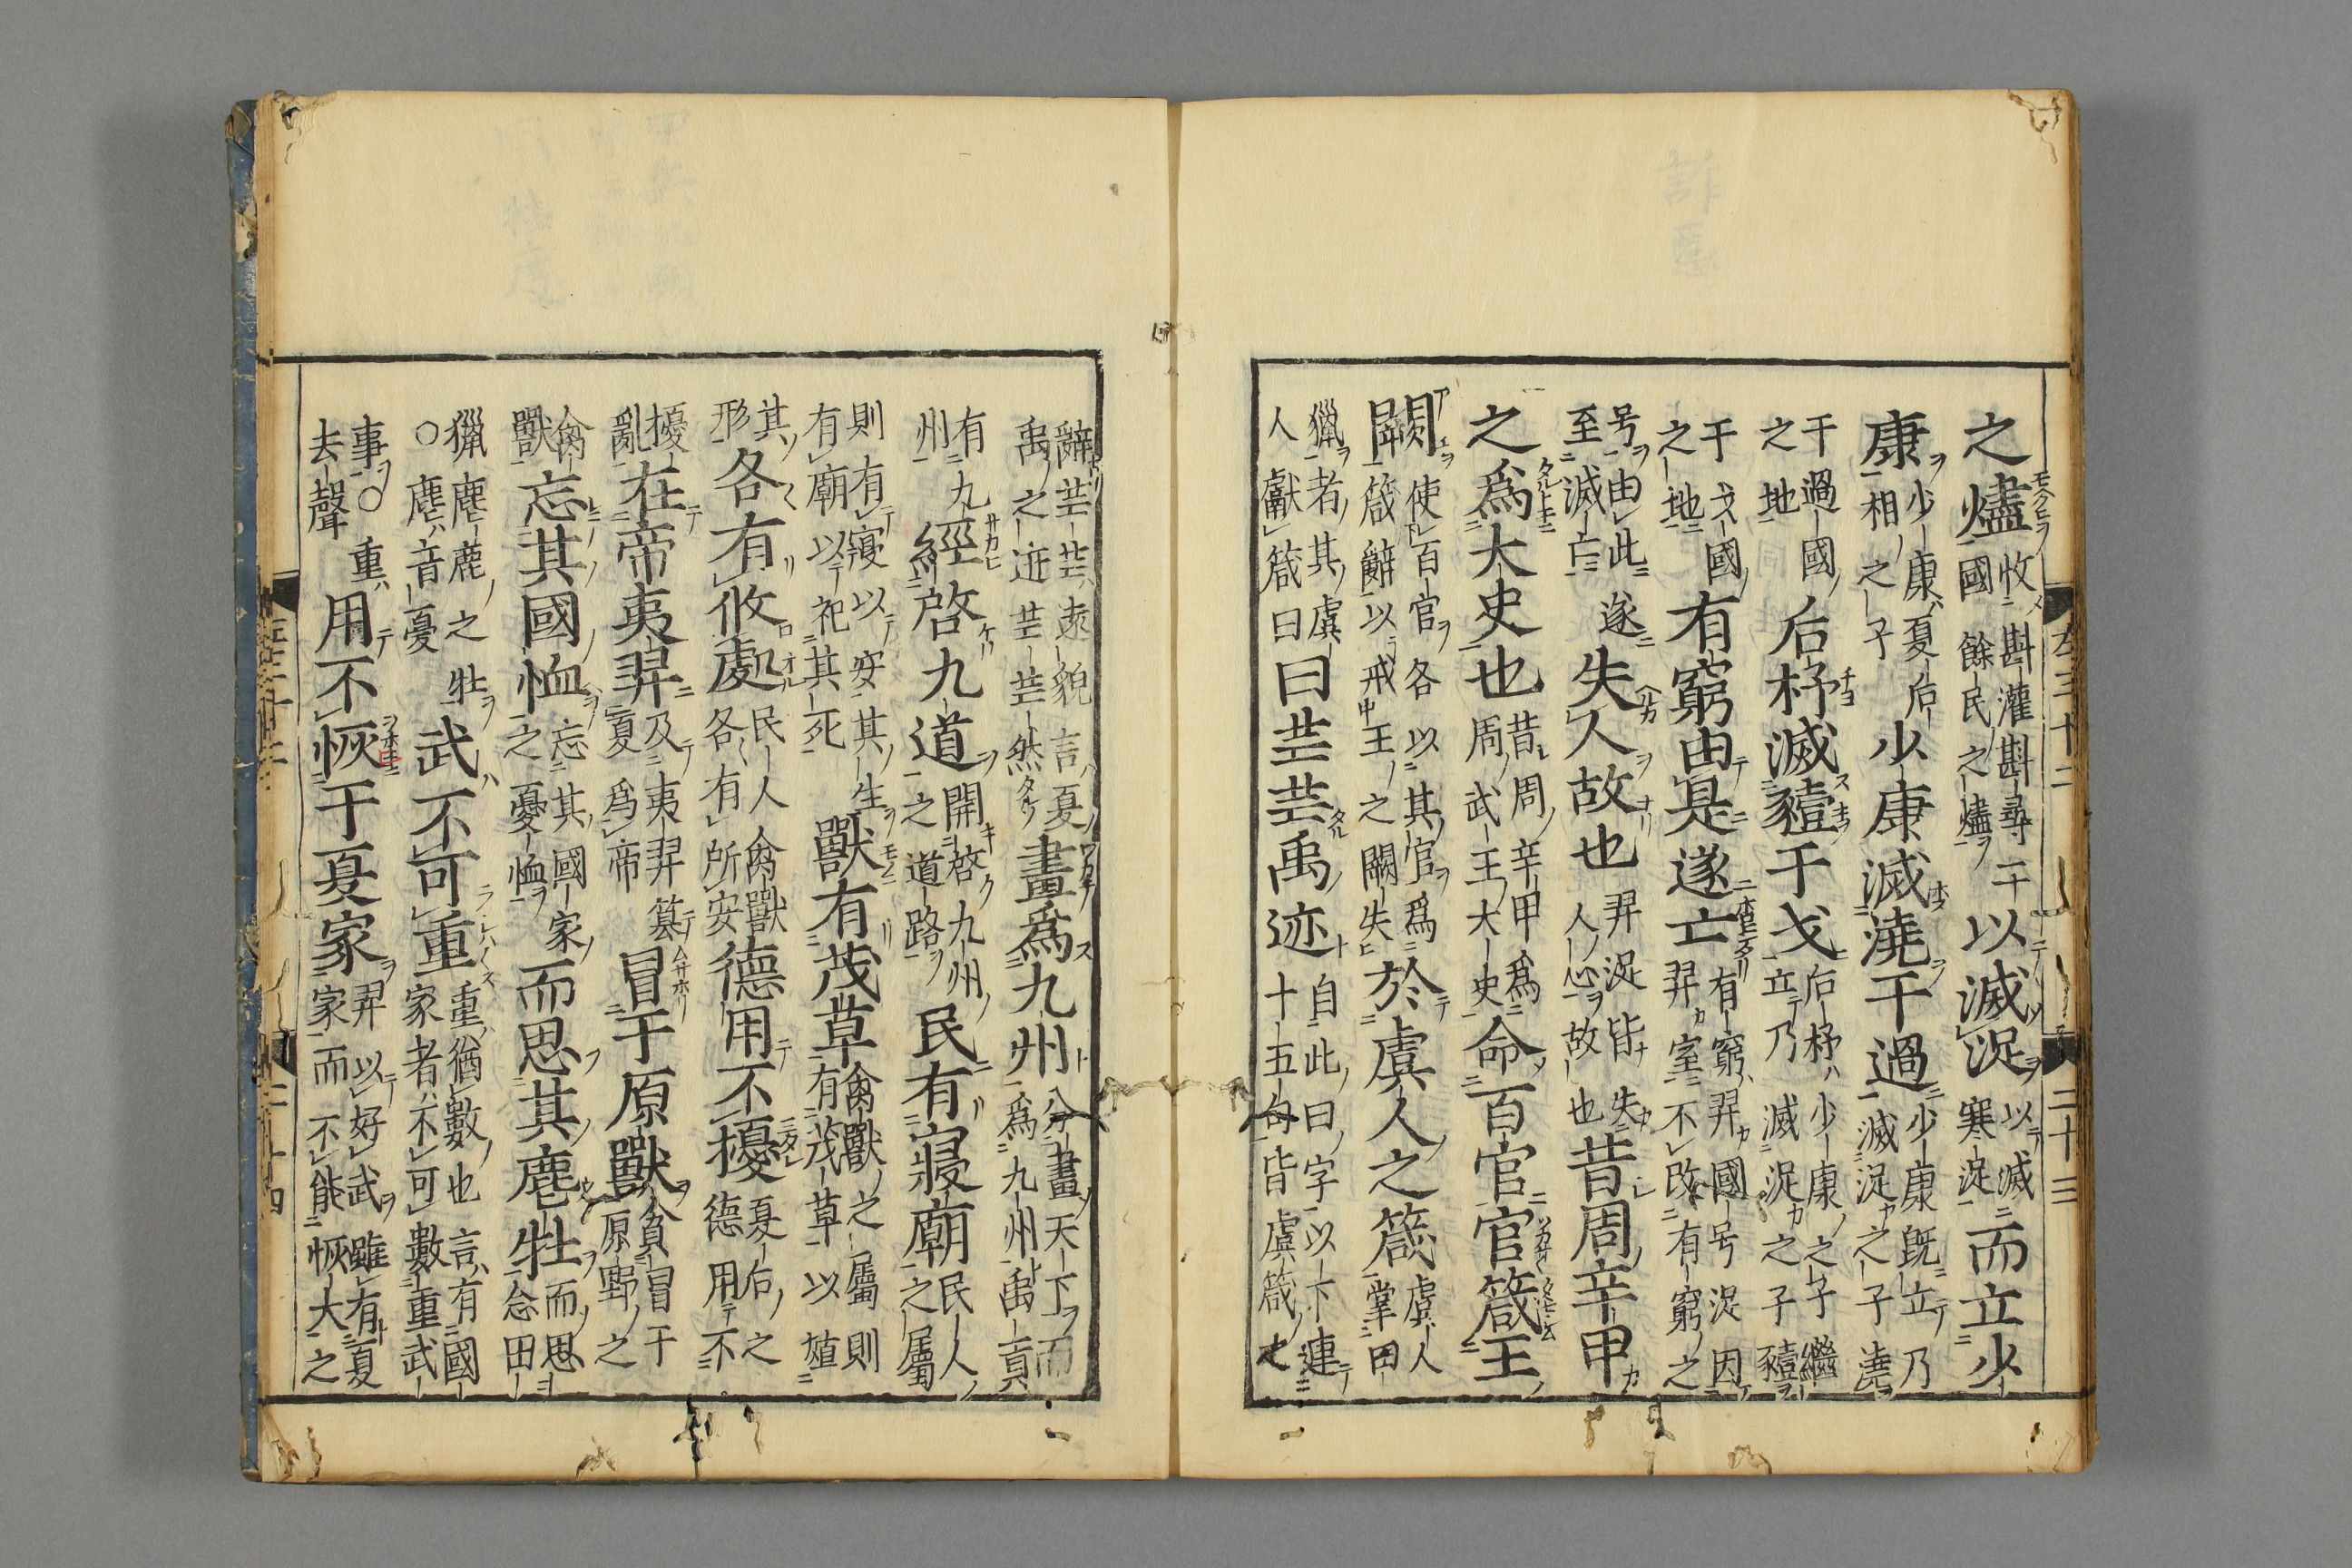 左三十二　二十三
之燼收二斟灌斟尋國餘民之燼以滅浞以滅寒浞而立少
康少康夏后相之子少康滅澆于過少康既立乃滅浞之子澆
于過國之地后杼滅豷于戈后杼少康之子繼立乃滅浞之子豷
于戈國之地有窮由是遂亡有窮羿國号浞因羿室不改有窮之
号由此遂至滅亡失人故也羿浞皆失人心故也昔周辛甲
之爲大史也昔周辛甲爲周武王大史命百官官箴王
闕使百官各以其官爲箴辭以戒王之闕失於虞人之箴虞人掌田
獵者其虞人獻箴曰曰芒芒禹迹自此曰字以下連十五句皆虞箴之
辭芒芒遠貌言夏禹之迹芒芒然畫爲九州分畫天下而爲九州禹貢
有九州經啓九道開啓九州之道路民有寢廟民人之屬
則有寢以安其生有廟以祀其死獸有茂草禽獸之屬則有茂草以殖
其形各有攸處民人禽獸各有所安德用不擾夏后之德用不
擾亂在帝夷羿及夷羿簒夏爲帝冒于原獸貪冒于原野之
禽獸忘其國恤忘其國家之憂恤而思其麀牡而思念田
獵麀鹿之牡○麀音憂武不可重重猶數也言有國家者不可數重武
事○重去聲用不恢于夏家羿以好武雖有夏家而不能恢大之
二十四